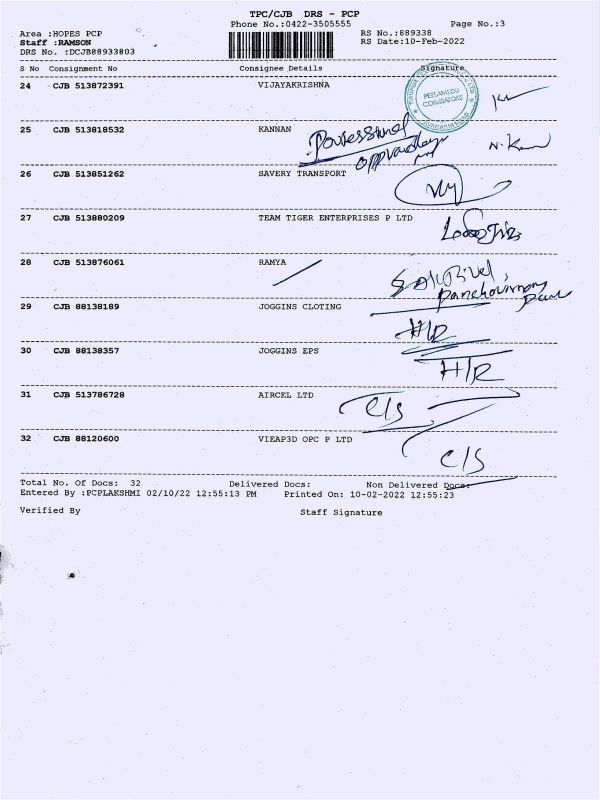 TPC/CJB DRS - PCP
Phone No.:0422-3505555 Page No.:3
Area :HOPES PCP RS No.:889338
Staff :RAMSON RS Date:10-Feb-2022
DRS No. :DCJB88933803
S No Consignment No Consignee Details Signature
24 CJB 513872391 VIJAYAKRISHNA
PEELAMEDU
COIMBATORE
25 CJB 513818532 KANNAN
26 CJB 513851262 SAVERY TRANSPORT
27 CJB 513880209 TEAM TIGER ENTERPRISES P LTD
28 CJB 513876061 RAMYA
29 CJB 88138189 JOGGINS CLOTING
H/R
30 CJB 88138357 JOGGINS EPS
H/R
31 CJB 513786728 AIRCEL LTD
C/S
32 CJB 88120600 VIEAP3D OPC P LTD
C/S
Total No. Of Docs: 32 Delivered Docs: Non Delivered Docs:
Entered By :PCPLAKSHMI 02/10/22 12:55:13 PM Printed On: 10-02-2022 12:55:23
Verified By Staff Signature